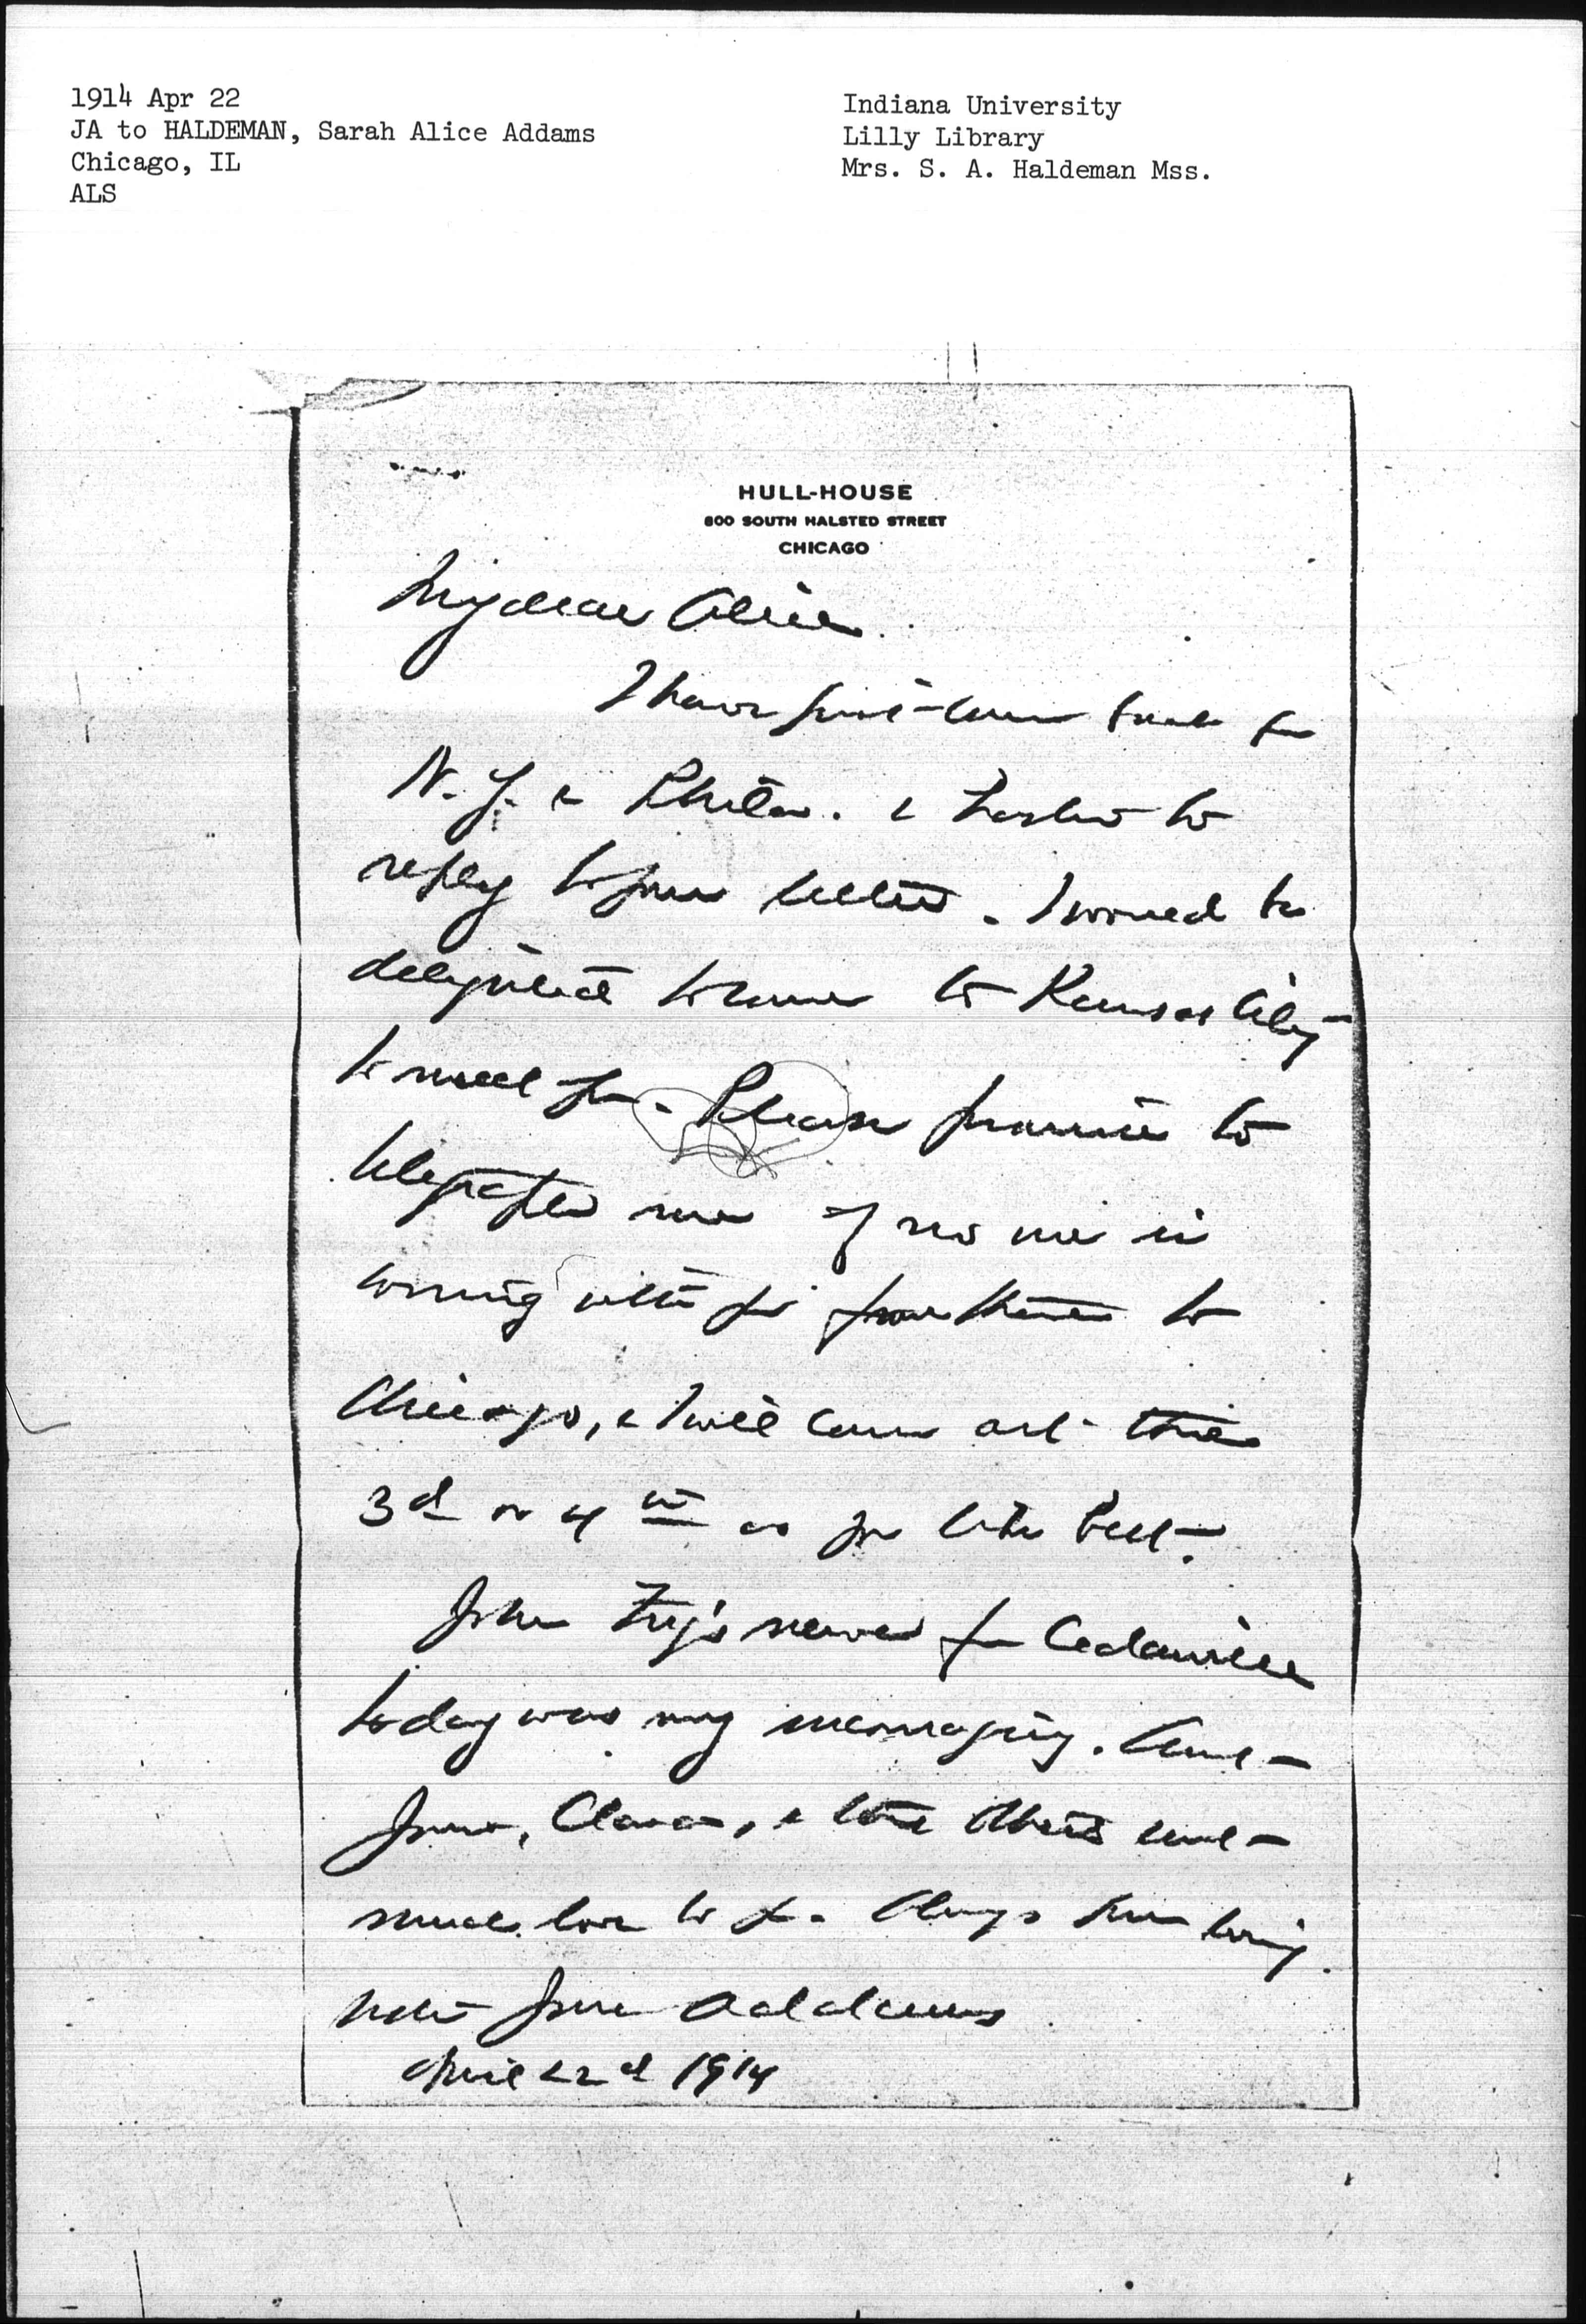 1914 Apr 22
JA to HALDEMAN, Sarah Alice Addams
Chicago, IL
ALS
Indiana University
Lilly Library
Mrs. S. A. Haldeman Mss.
HULL-HOUSE
800 SOUTH HALSTED STREET
CHICAGO
My dear Alice
I have just come back from
N.Y. & Phila. & hasten to
reply to your letter. I would be
delighted to come to Kansas City
to meet you. Please promise to
telegraph me if no one is
coming with you from there to
Chicago, & I will come out the
3d or 4th as you like best.
John Fry's news from Cedarville
today was very encouraging. Aunt
Clara, & the others send
much love to you. Always your loving
sister Jane Addams
April 22d 1914